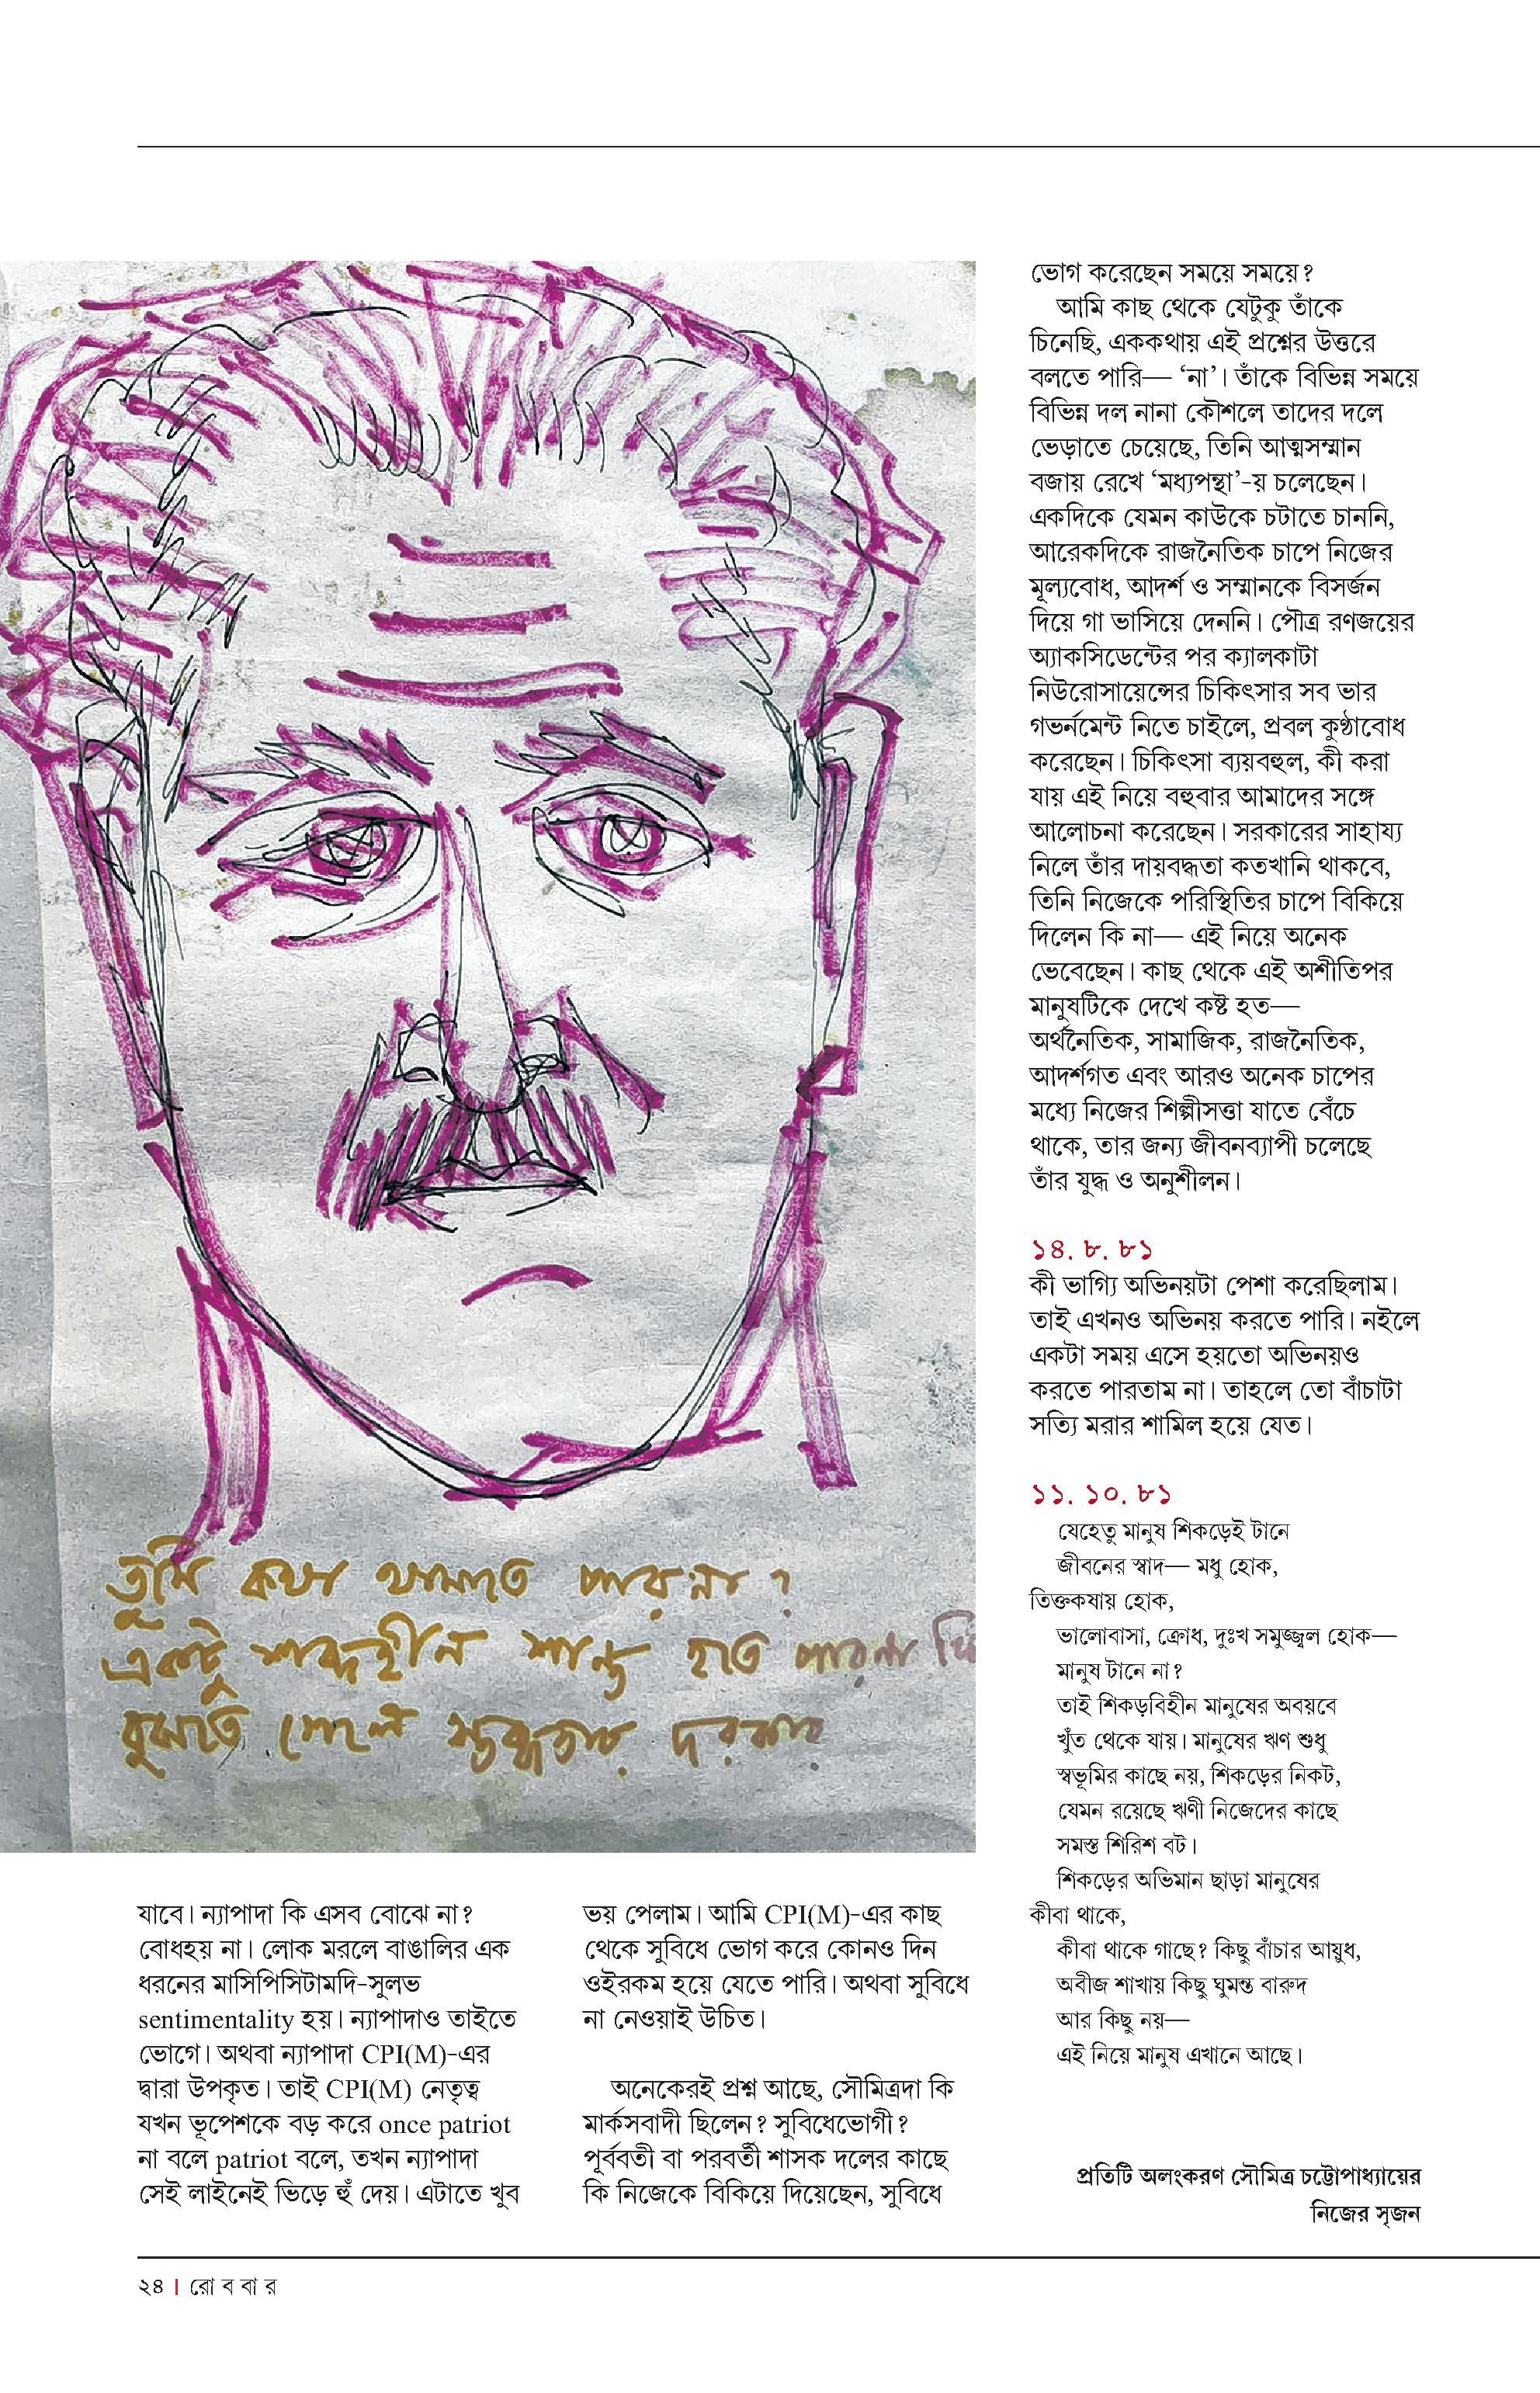 তুমি কথা থামাতে পারনা?
একটু শব্দহীন শান্ত হতে পারনা
বুঝতে গেলে স্তব্ধতার দরকার
যাবে। ন্যাপাদা কি এসব বোঝে না?
বোধহয় না। লোক মরলে বাঙালির এক
ধরনের মাসিপিসিটামদি-সুলভ
sentimentality হয়। ন্যাপাদাও তাইতে
ভোগে। অথবা ন্যাপাদা CPI(M)-এর
দ্বারা উপকৃত। তাই CPI(M) নেতৃত্ব
যখন ভূপেশকে বড় করে once patriot
না বলে patriot বলে, তখন ন্যাপাদা
সেই লাইনেই ভিড়ে হুঁ দেয়। এটাতে খুব
ভয় পেলাম। আমি CPI(M)-এর কাছ
থেকে সুবিধে ভোগ করে কোনও দিন
ওইরকম হয়ে যেতে পারি। অথবা সুবিধে
না নেওয়াই উচিত।
অনেকেরই প্রশ্ন আছে, সৌমিত্রদা কি
মার্কসবাদী ছিলেন? সুবিধেভোগী?
পূর্ববর্তী বা পরবর্তী শাসক দলের কাছে
কি নিজেকে বিকিয়ে দিয়েছেন, সুবিধে
ভোগ করেছেন সময়ে সময়ে?
আমি কাছ থেকে যেটুকু তাঁকে
চিনেছি, এককথায় এই প্রশ্নের উত্তরে
বলতে পারি— ‘না’। তাঁকে বিভিন্ন সময়ে
বিভিন্ন দল নানা কৌশলে তাদের দলে
ভেড়াতে চেয়েছে, তিনি আত্মসম্মান
বজায় রেখে ‘মধ্যপন্থা’-য় চলেছেন।
একদিকে যেমন কাউকে চটাতে চাননি,
আরেকদিকে রাজনৈতিক চাপে নিজের
মূল্যবোধ, আদর্শ ও সম্মানকে বিসর্জন
দিয়ে গা ভাসিয়ে দেননি। পৌত্র রণজয়ের
অ্যাকসিডেন্টের পর ক্যালকাটা
নিউরোসায়েন্সের চিকিৎসার সব ভার
গভর্নমেন্ট নিতে চাইলে, প্রবল কুণ্ঠাবোধ
করেছেন। চিকিৎসা ব্যয়বহুল, কী করা
যায় এই নিয়ে বহুবার আমাদের সঙ্গে
আলোচনা করেছেন। সরকারের সাহায্য
নিলে তাঁর দায়বদ্ধতা কতখানি থাকবে,
তিনি নিজেকে পরিস্থিতির চাপে বিকিয়ে
দিলেন কি না— এই নিয়ে অনেক
ভেবেছেন। কাছ থেকে এই অশীতিপর
মানুষটিকে দেখে কষ্ট হত—
অর্থনৈতিক, সামাজিক, রাজনৈতিক,
আদর্শগত এবং আরও অনেক চাপের
মধ্যে নিজের শিল্পীসত্তা যাতে বেঁচে
থাকে, তার জন্য জীবনব্যাপী চলেছে
তাঁর যুদ্ধ ও অনুশীলন।
১৪. ৮. ৮১
কী ভাগ্যি অভিনয়টা পেশা করেছিলাম।
তাই এখনও অভিনয় করতে পারি। নইলে
একটা সময় এসে হয়তো অভিনয়ও
করতে পারতাম না। তাহলে তো বাঁচাটা
সত্যি মরার শামিল হয়ে যেত।
১১. ১০. ৮১
যেহেতু মানুষ শিকড়েই টানে
জীবনের স্বাদ— মধু হোক,
তিক্তকষায় হোক,
ভালোবাসা, ক্রোধ, দুঃখ সমুজ্জ্বল হোক—
মানুষ টানে না?
তাই শিকড়বিহীন মানুষের অবয়বে
খুঁত থেকে যায়। মানুষের ঋণ শুধু
স্বভূমির কাছে নয়, শিকড়ের নিকট,
যেমন রয়েছে ঋণী নিজেদের কাছে
সমস্ত শিরিশ বট।
শিকড়ের অভিমান ছাড়া মানুষের
কীবা থাকে,
কীবা থাকে গাছে? কিছু বাঁচার আয়ুধ,
অবীজ শাখায় কিছু ঘুমন্ত বারুদ
আর কিছু নয়—
এই নিয়ে মানুষ এখানে আছে।
প্রতিটি অলংকরণ সৌমিত্র চট্টোপাধ্যায়ের
নিজের সৃজন
২৪ | রো ব বা র